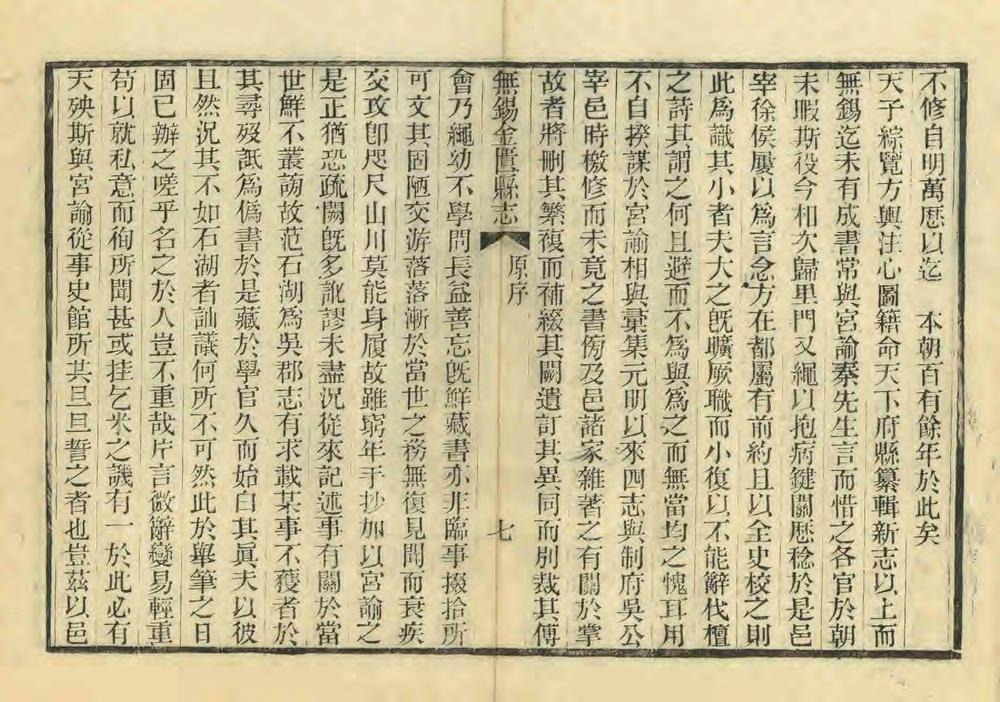 不修自明萬厯以迄　本朝百有餘年於此矣
天子綜覽方輿注心圖籍命天下府縣纂輯新志以上而
無錫迄未有成書常與宮諭秦先生言而惜之各官於朝
未暇斯役今相次歸里門又繩以抱病鍵關厯稔於是邑
宰徐侯屢以爲言念方在都屬有前約且以全史校之則
此爲識其小者夫大之旣曠厥職而小復以不能辭代檀
之詩其謂之何且避而不爲與爲之而無當均之愧耳用
不自揆謀於宮諭相與彙集元明以來四志與制府吳公
宰邑時檄修而未竟之書傍及邑諸家雜著之有關於掌
故者將刪其繁複而補綴其闕遺訂其異同而別裁其傳
無錫金匱縣志　原序　七
會乃繩幼不學問長益善忘旣鮮藏書亦非臨事掇拾所
可文其固陋交游落落漸於當世之務無復見聞而衰疾
交攻卽咫尺山川莫能身履故雖窮年手抄加以宮諭之
是正猶恐疏闕旣多訛謬未盡況從來記述事有關於當
世鮮不叢謗故范石湖爲吳郡志有求載某事不獲者於
其尋歿詆爲僞書於是藏於學官久而始白其眞夫以彼
且然況其不如石湖者訕議何所不可然此於舉筆之日
固已辦之嗟乎名之於人豈不重哉片言微辭變易輕重
苟以就私意而徇所聞甚或挂乞米之譏有一於此必有
天殃斯與宮諭從事史館所共旦旦誓之者也豈茲以邑